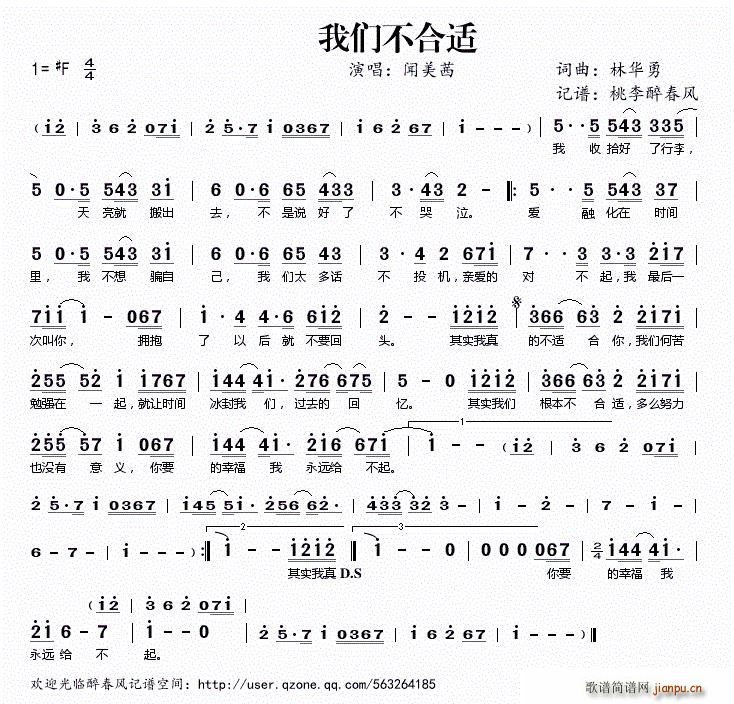 我们不合适
1=♯F 4/4 演唱：闻美茜 词曲：林华勇
记谱：桃李醉春风
（i2 | 3 6 2 0 7 i | 2 2 5·7 i 0 3 6 7 | i 6 2 6 7 | i - - - ） | 5··5 5 4 3 3 3 5 |
我 收 拾好 了行李，
5 0·5 5 4 3 3 i | 6 0·6 6 5 4 3 3 | 3·4 3 2 - ‖: 5··5 5 4 3 3 7 |
天 亮就 搬出 去， 不 是说 好了 不 哭 泣。 爱 融 化在 时间
5 0·5 5 4 3 3 i | 6 0·6 6 5 4 3 | 3·4 2 6 7 i | 7··3 3·3 2 i 7 |
里， 我 不想 骗自 己， 我 们太 多话 不 投 机，亲爱的 对 不 起，我 最后一
7 i i i - 0 6 7 | i·4 4·6 6 i 2 | 2 - - i 2 i 2 | 3 6 6 6 3 2 2 i 7 i |
次叫你， 拥抱 了 以 后 就 不要回 头。 其实我真 的不适 合 你，我们何苦
2 5 5 5 2 i i 7 6 7 | i 4 4 4 i· 2 7 6 6 7 5 | 5 - 0 i 2 i 2 | 3 6 6 6 3 2 2 i 7 i |
勉强在 一 起，就让时间 冰封我 们，过去的 回 忆。 其实我们 根本不 合 适，多么努力
2 5 5 5 7 i 0 6 7 | i 4 4 4 i· 2 i 6 6 7 i | i - - （i 2 | 3 6 2 0 7 i |
也没有 意 义，你要 的幸福 我 永远给 不起。
2 2 5·7 i 0 3 6 7 | i 4 5 5 i· 2 5 6 6 2· | 4 3 3 3 2 3 | i - 2 - | 7 - i - |
6 - 7 - | i - - - ） :‖ i - - i 2 i 2 ‖ i - - 0 | 0 0 0 0 6 7 | 2/4 i 4 4 4 i· |
其实我真 D.S 你要 的幸福 我
（i 2 | 3 6 2 0 7 i |
2 i 6 - 7 | i - - 0 | 2 2 5·7 i 0 3 6 7 | i 6 2 6 7 | i - - - ）‖
永远给 不 起。
欢迎光临醉春风记谱空间：http://user.qzone.qq.com/563264185
歌谱简谱网 jianpu.cn